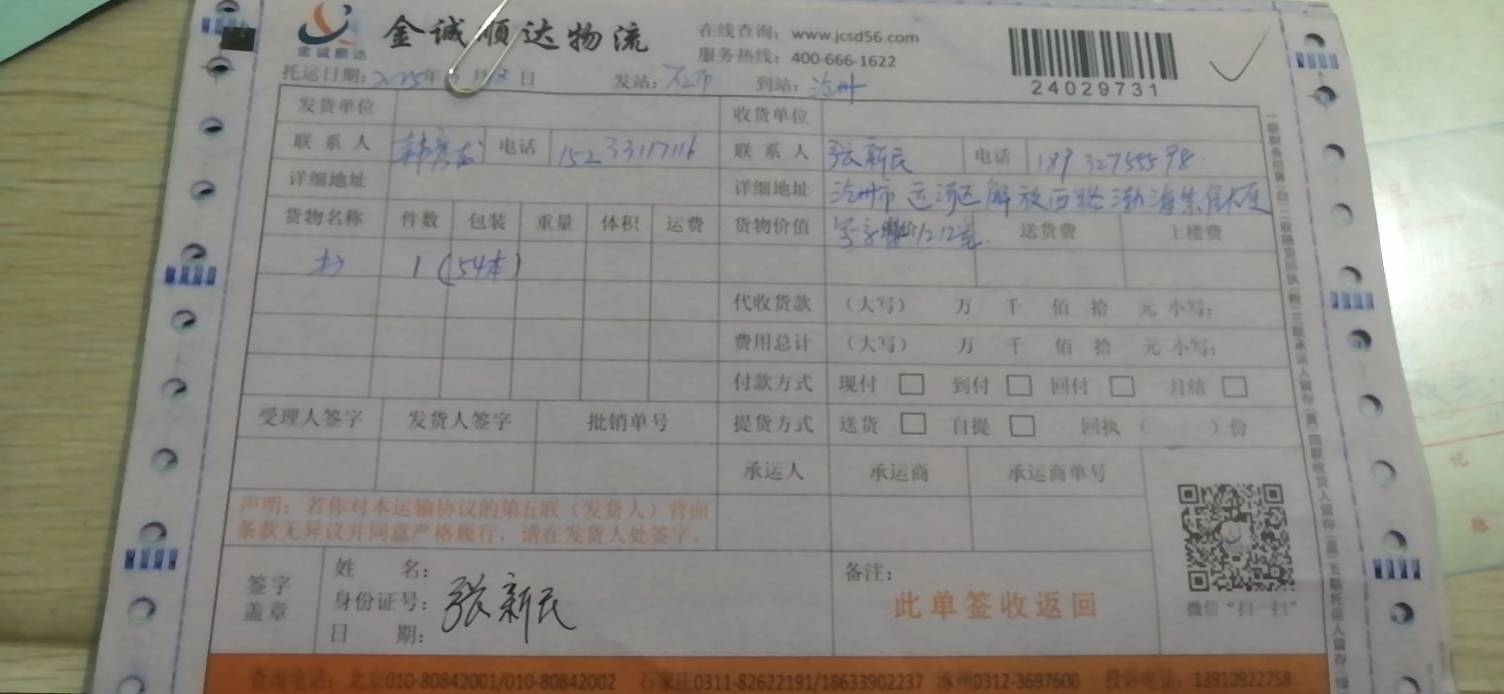 金诚顺达
金诚顺达物流
在线查询：www.jcsd56.com
服务热线：400-666-1622
24029731
托运日期：2025年 月 日 发站： 到站：沧州
发货单位 收货单位
联系人 电话 15233117116 联系人 张新民 电话 18932755598
详细地址 详细地址 沧州市运河区解放西路渤海
货物名称 件数 包装 重量 体积 运费 货物价值 1212室 送货费 上楼费
1（54本）
代收货款 （大写） 万 千 佰 拾 元 小写：
费用总计 （大写） 万 千 佰 拾 元 小写：
付款方式 现付 到付 回付 月结
受理人签字 发货人签字 批销单号 提货方式 送货 自提 回执（ ）份
承运人 承运商 承运商单号
声明：若你对本运输协议的第五联（发货人）背面
条款无异议并同意严格履行，请在发货人处签字。
签字
盖章
姓 名：
身份证号：
日 期：
张新民
备注：
此单签收返回
微信“扫一扫”
查询电话：北京010-80842001/010-80842002 石家庄0311-82622191/18633902237 涿州0312-3697600 投诉电话：13910922758